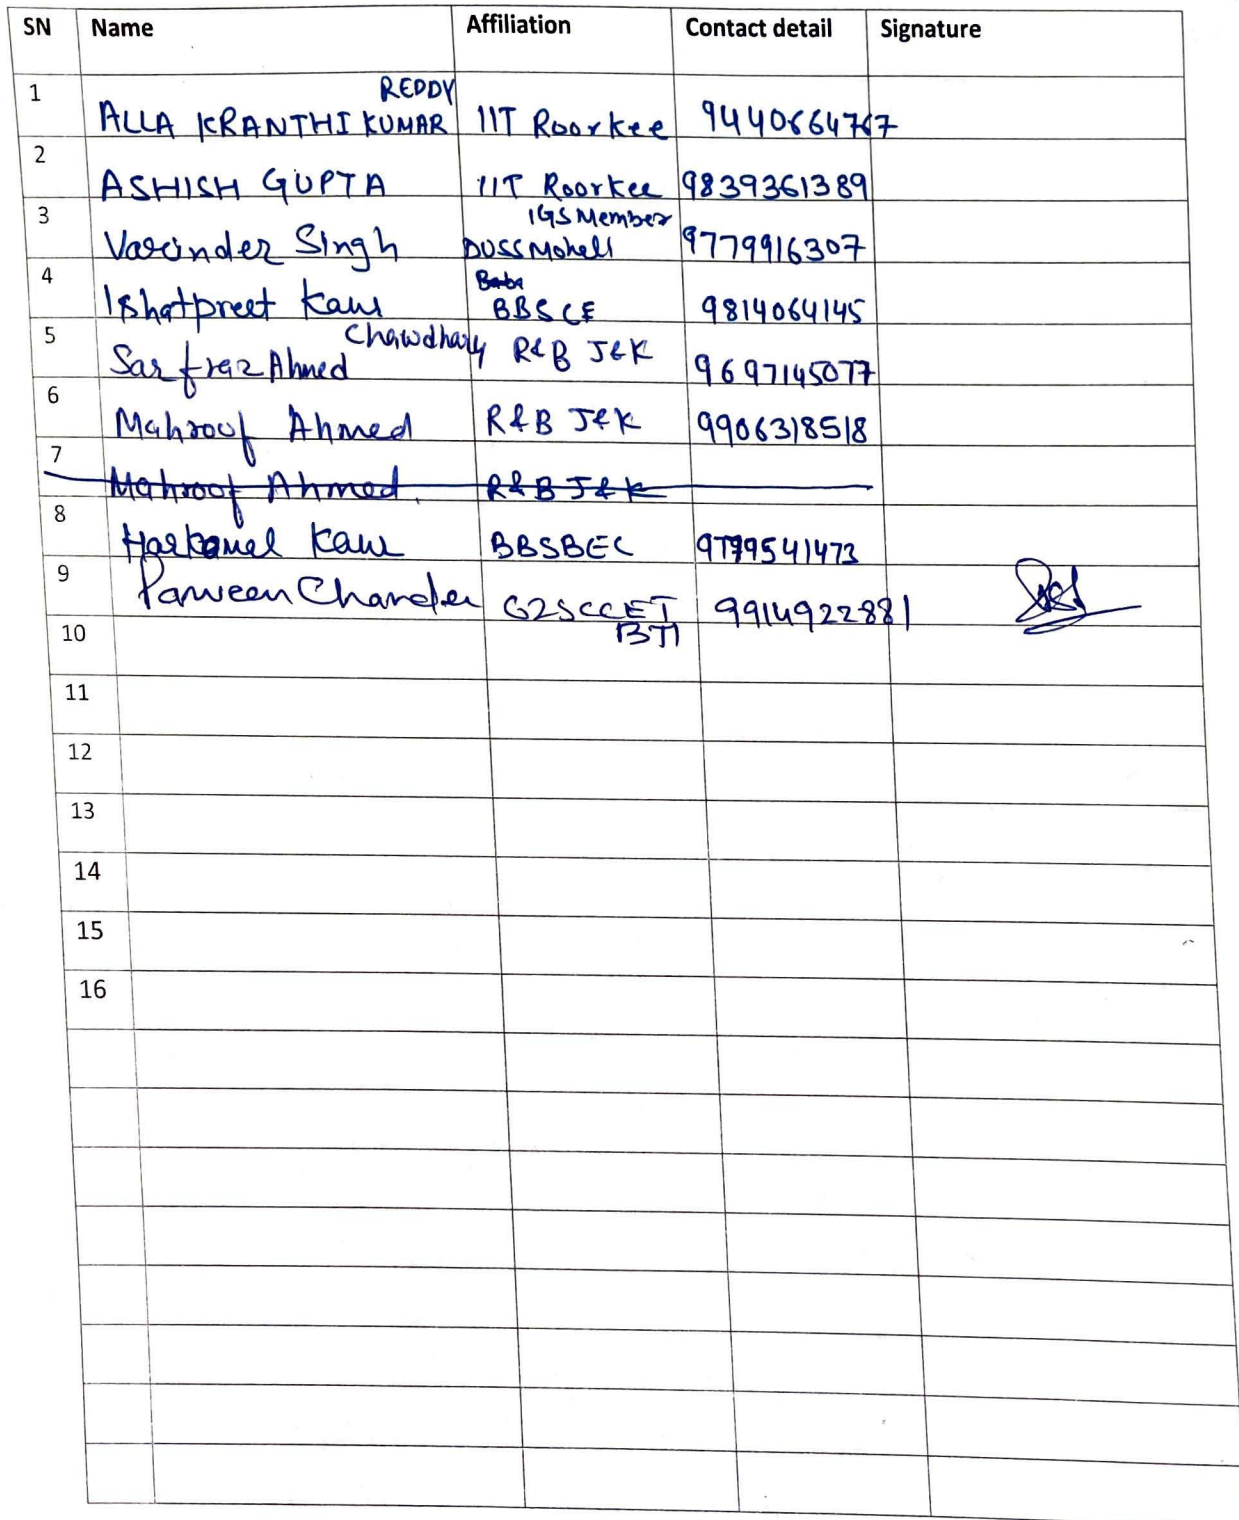 SN Name Affiliation Contact detail Signature
1 ALLA KRANTHI KUMAR REDDY IIT Roorkee 9440664767
2 ASHISH GUPTA IIT Roorkee 9839361389
3 Varinder Singh IGS Member DUSS Mohali 9779916307
4 Ishatpreet Kaur BBSCE 9814064145
5 Sarfraz Ahmed Chawdhary R&B J&K 9697145077
6 Mahroof Ahmed R&B J&K 9906318518
7 Mahroof Ahmed R&B J&K
8 Harkamal Kaur BBSBEC 9779541473
9 Parveen Chander GZSCCET BTI 9914922881
10
11
12
13
14
15
16